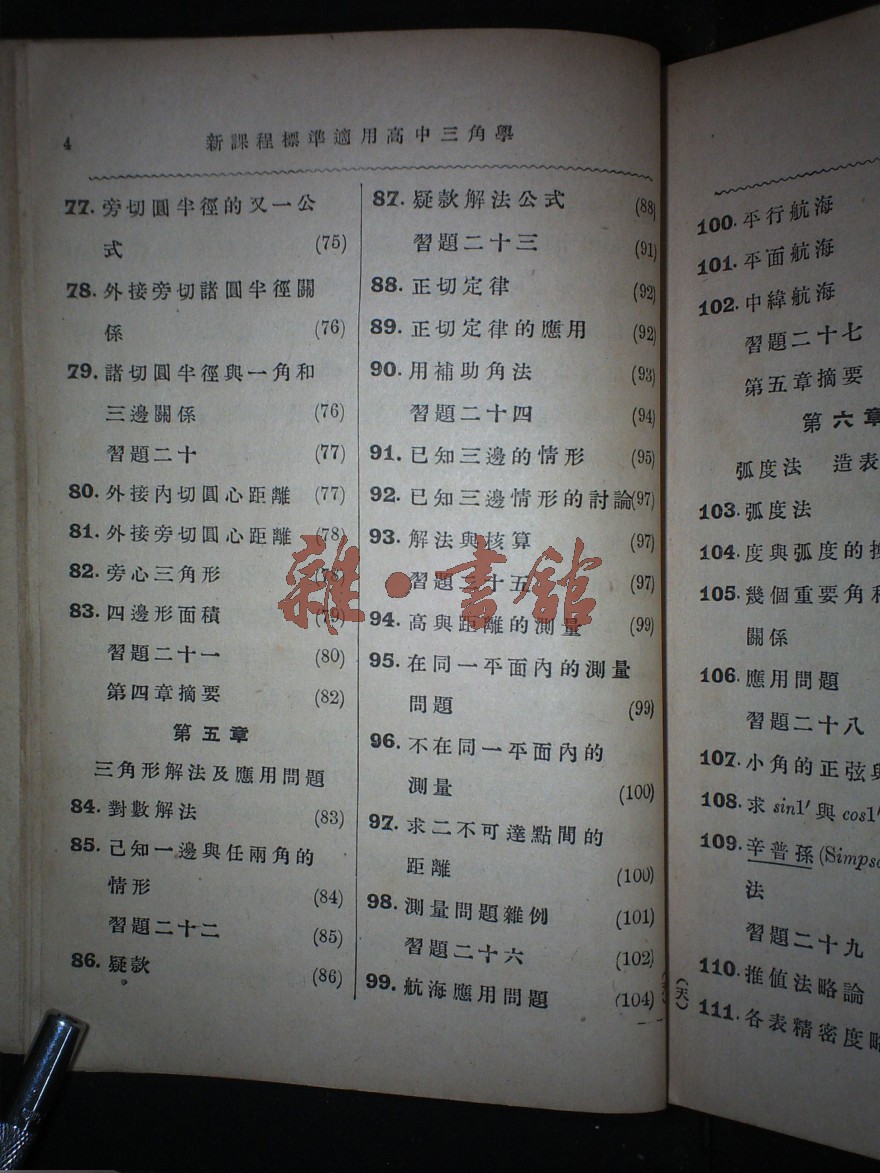 4
新課程標準適用高中三角學
77. 旁切圓半徑的又一公
式 (75)
78. 外接旁切諸圓半徑關
係 (76)
79. 諸切圓半徑與一角和
三邊關係 (76)
習題二十 (77)
80. 外接內切圓心距離 (77)
81. 外接旁切圓心距離 (78)
82. 旁心三角形
83. 四邊形面積 (79)
習題二十一 (80)
第四章摘要 (82)
第五章
三角形解法及應用問題
84. 對數解法 (83)
85. 已知一邊與任兩角的
情形 (84)
習題二十二 (85)
86. 疑款 (86)
87. 疑款解法公式 (88)
習題二十三 (91)
88. 正切定律 (92)
89. 正切定律的應用 (92)
90. 用補助角法 (93)
習題二十四 (94)
91. 已知三邊的情形 (95)
92. 已知三邊情形的討論 (97)
93. 解法與核算 (97)
習題二十五 (97)
94. 高與距離的測量 (99)
95. 在同一平面內的測量
問題 (99)
96. 不在同一平面內的
測量 (100)
97. 求二不可達點間的
距離 (100)
98. 測量問題雜例 (101)
習題二十六 (102)
99. 航海應用問題 (104)
100. 平行航海
101. 平面航海
102. 中緯航海
習題二十七
第五章摘要
第六章
弧度法 造表
103. 弧度法
104. 度與弧度的換
105. 幾個重要角和
關係
106. 應用問題
習題二十八
107. 小角的正弦與
108. 求 sin1′ 與 cos1′
109. 辛普孫 (Simpso
法
習題二十九
110. 推值法略論
111. 各表精密度略
(天)
雜·書館